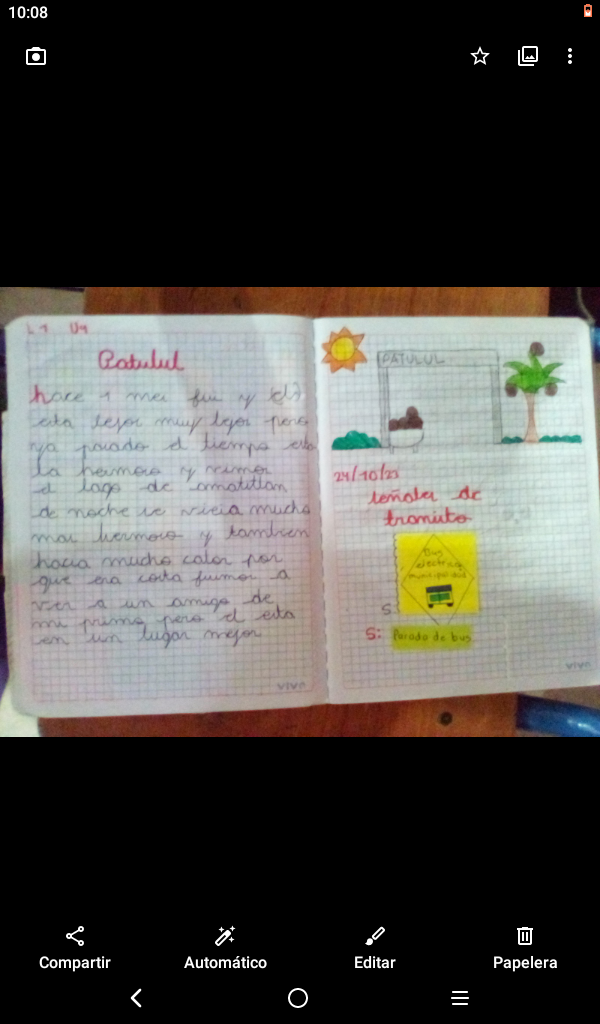 10:08
L1 U4
Patulul
hace 1 mes fui y
esta lejos muy lejos pero
ya pasado el tiempo esta
la hermoso y vimos
el lago de amatitlan
de noche se vieia mucho
mas hermoso y tambien
hacia mucho calor por
que era costa fuimos a
ver a un amigo de
mi primo pero el esta
en un lugar mejor
vivo
PATULUL
24/10/23
señales de
transito
Bus
electrico
municipalidad
S
S: Parada de bus
vivo
Compartir
Automático
Editar
Papelera